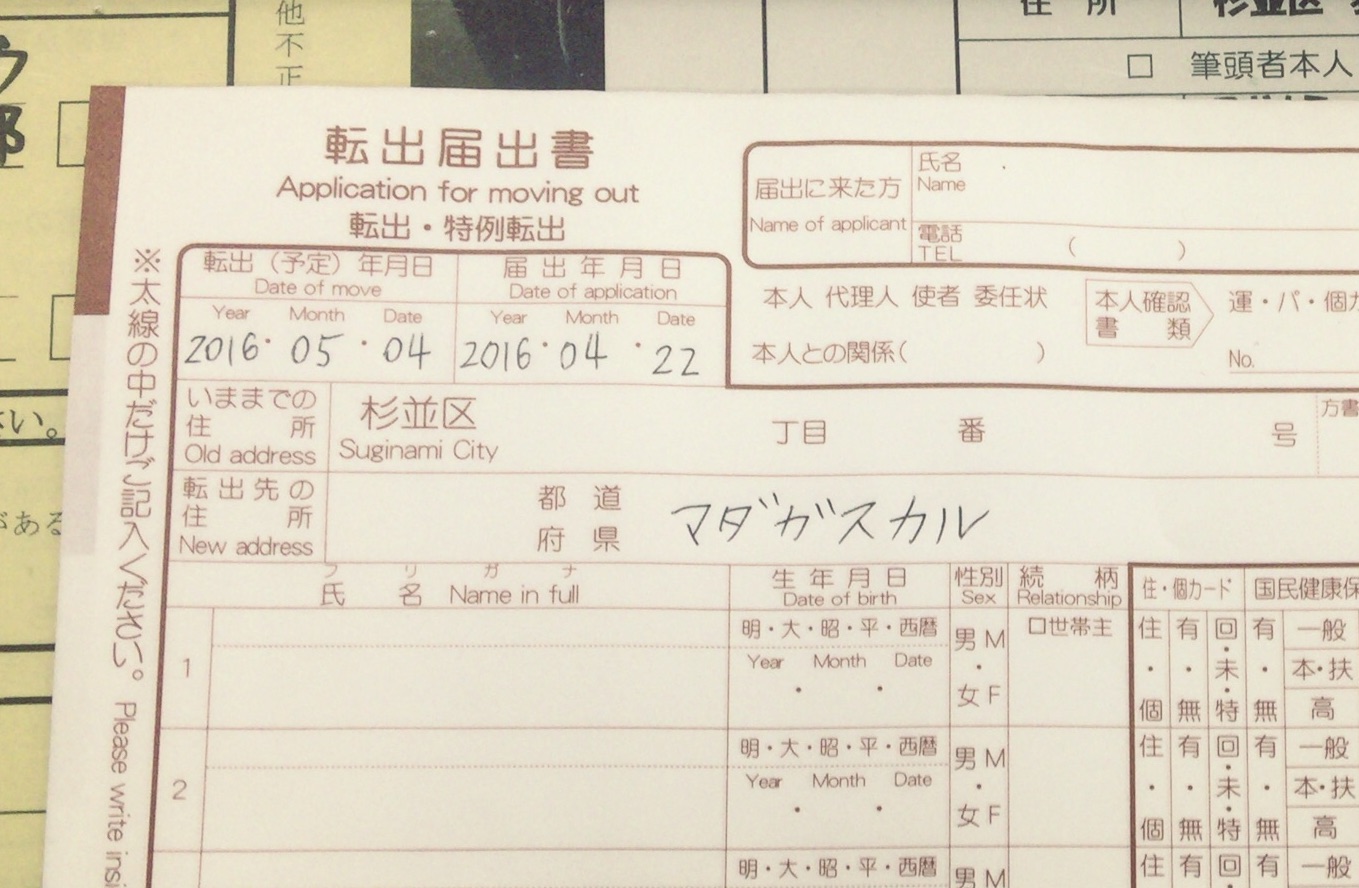 他不正
住所
杉並区
□ 筆頭者本人
転出届出書
Application for moving out
転出・特例転出
届出に来た方
Name of applicant
氏名
Name
電話
TEL
( )
※太線の中だけご記入ください。 Please write insi
転出（予定）年月日
Date of move
届出年月日
Date of application
Year Month Date
Year Month Date
2016・05・04
2016・04・22
本人 代理人 使者 委任状
本人確認
書類
運・パ・個カ
本人との関係( )
No.
いままでの
住所
Old address
杉並区
Suginami City
丁目 番 号
方書
転出先の
住所
New address
都道
府県
マダガスカル
フリガナ
氏名 Name in full
生年月日
Date of birth
性別
Sex
続柄
Relationship
住・個カード
国民健康保
1
明・大・昭・平・西暦
Year Month Date
・ ・
男 M
・
女 F
□世帯主
住 有 回 有 一般
・ ・ 未 ・ 本・扶
個 無 特 無 高
2
明・大・昭・平・西暦
Year Month Date
・ ・
男 M
・
女 F
住 有 回 有 一般
・ ・ 未 ・ 本・扶
個 無 特 無 高
明・大・昭・平・西暦
男 M
住 有 回 有 一般
さい。
がある